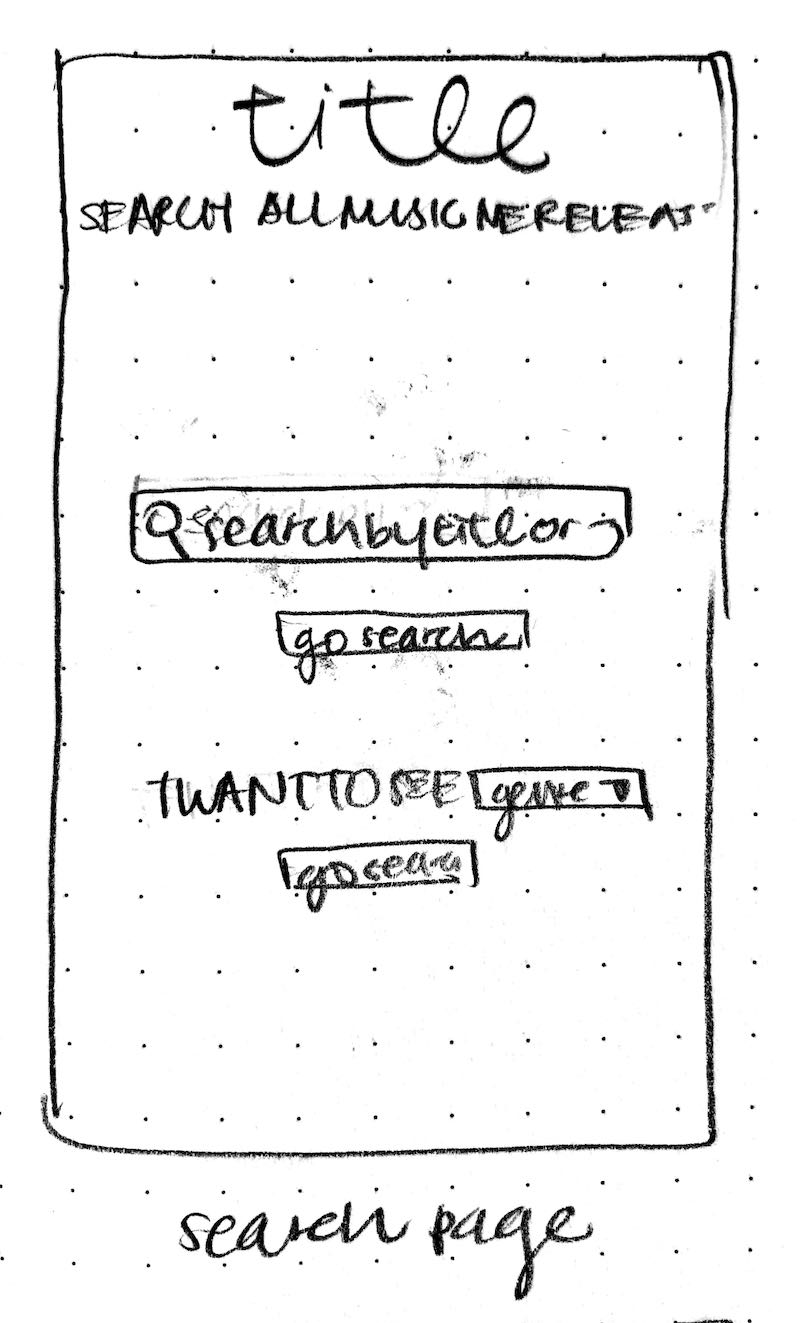 title
SEARCH ALLMUSIC
searchbytitle or
go search
I WANT TO SEE genre
go sear
search page